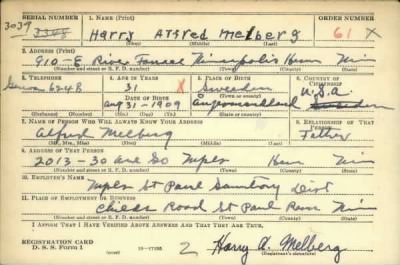 SERIAL NUMBER 1. NAME (Print) ORDER NUMBER
3039 Harry Alfred Melberg 61 X
(First) (Middle) (Last)
2. ADDRESS (Print)
910-E River Minneapolis Henn Min
(Number and street or R. F. D. number) (Town) (County) (State)
3. TELEPHONE 4. AGE IN YEARS 5. PLACE OF BIRTH 6. COUNTRY OF CITIZENSHIP
6248 31 X Sweeden U.S.A.
DATE OF BIRTH (Town or county)
Aug 31-1909
(Mo.) (Day) (Yr.) (State or country)
7. NAME OF PERSON WHO WILL ALWAYS KNOW YOUR ADDRESS 8. RELATIONSHIP OF THAT PERSON
Alfred Melberg Father
(Mr., Mrs., Miss) (First) (Middle) (Last)
9. ADDRESS OF THAT PERSON
2013-30 Ave So Mpls Henn Min
(Number and street or R. F. D. number) (Town) (County) (State)
10. EMPLOYER'S NAME
Mpls St Paul Sanitary Dist
11. PLACE OF EMPLOYMENT OR BUSINESS
Childs Road St Paul Ram Min
(Number and street or R. F. D. number) (Town) (County) (State)
I AFFIRM THAT I HAVE VERIFIED ABOVE ANSWERS AND THAT THEY ARE TRUE.
REGISTRATION CARD
D. S. S. Form 1 2 Harry A. Melberg
(Registrant's signature)